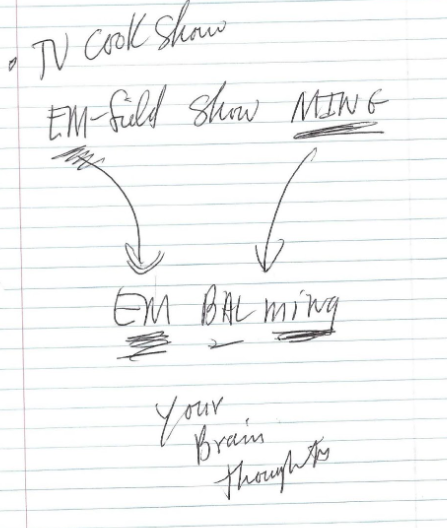 • TV Cook Show
EM-field Show MING
EM BAL ming
your
Brain
thoughts